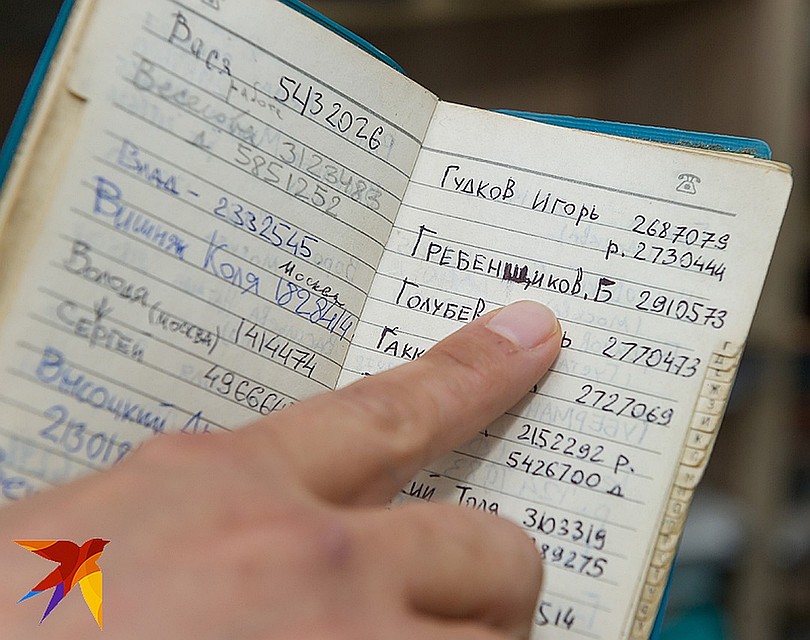 Вася 5432026
работа
Веселова 3123483
д 5851252
Влад - 2332545
Вишняк Коля
Москва
1828414
Володя (москва) 1414474
Сергей
49666
Высоцкий
213018
Гудков Игорь 2687079
р. 2730444
Гребенщиков. Б 2910573
Голубев ь 2770473
Гакк 2727069
2152292 р.
5426700 д
ский Толя 3103319
89275
514
Г
Д
Е
Ж
З
И
К